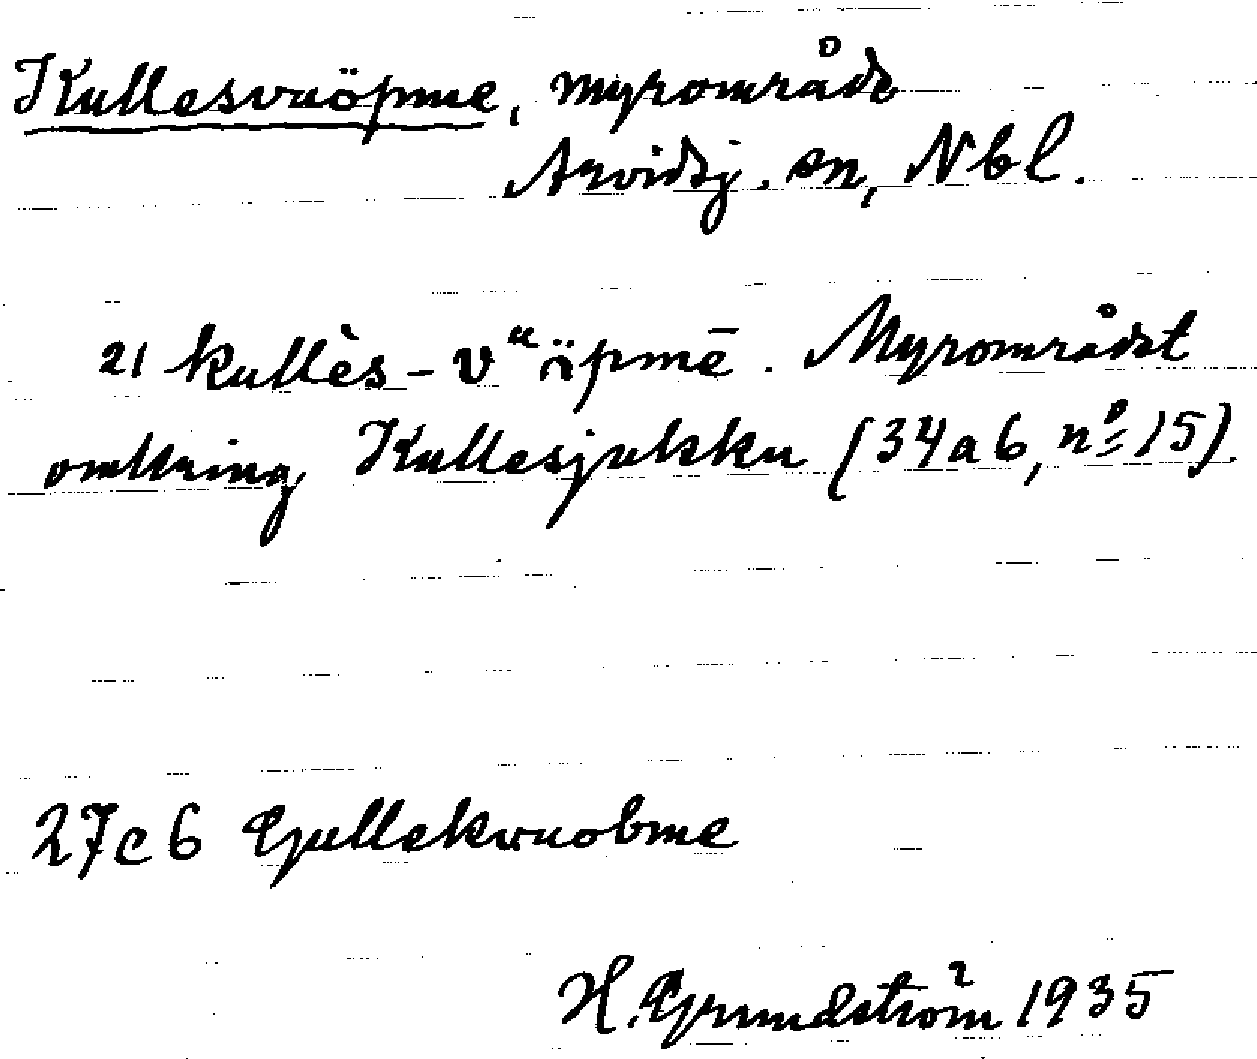 Kullesvuöpme, myrområde
Arvidsj. sn, Nbl.
21 kullès-vᵘöpmē. Myrområdet
omkring Kullesjukku (34a6, nº 15).
27c6 Gullekvuobme
H. Grundström 1935